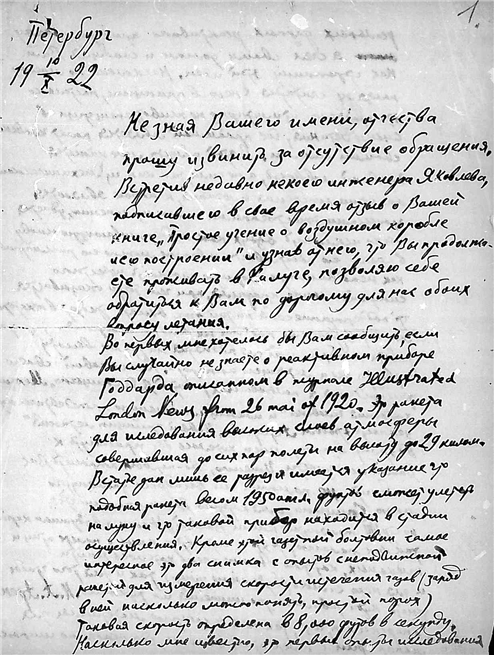 1.
Петербург
19 10/X 22
Не зная Вашего имени, отчества
прошу извинить за отсутствие обращения.
Встретив недавно некоего инженера Яковлева,
подписавшего в свое время отзыв о Вашей
книге „Простое учение о воздушном корабле
и его построении" и узнав от него, что Вы продолжа-
ете проживать в Калуге, позволяю себе
обратиться к Вам по дорогому для нас обоих
вопросу летания.
Во первых, мне хотелось бы Вам сообщить, если
Вы случайно не знаете о реактивном приборе
Годдарда описанном в журнале Illustrated
London News from 26 mai of 1920. Эта ракета
для исследования высших слоев атмосферы
совершавшая до сих пор полеты на высоту до 29 килом.
В статье дан лишь ее разрез и имеется указание что
подобная ракета весом 1950 фунтов сможет улететь
на луну и что таковой прибор находится в стадии
осуществления. Кроме этой газетной болтовни самое
интересное это два снимка с опытов с неподвижной
ракетой для измерения скорости истечения газов (заряд
в ней насколько можно понять, простой порох)
Таковая скорость определена в 8,000 футов в секунду.
Насколько мне известно, это первые опыты исследования